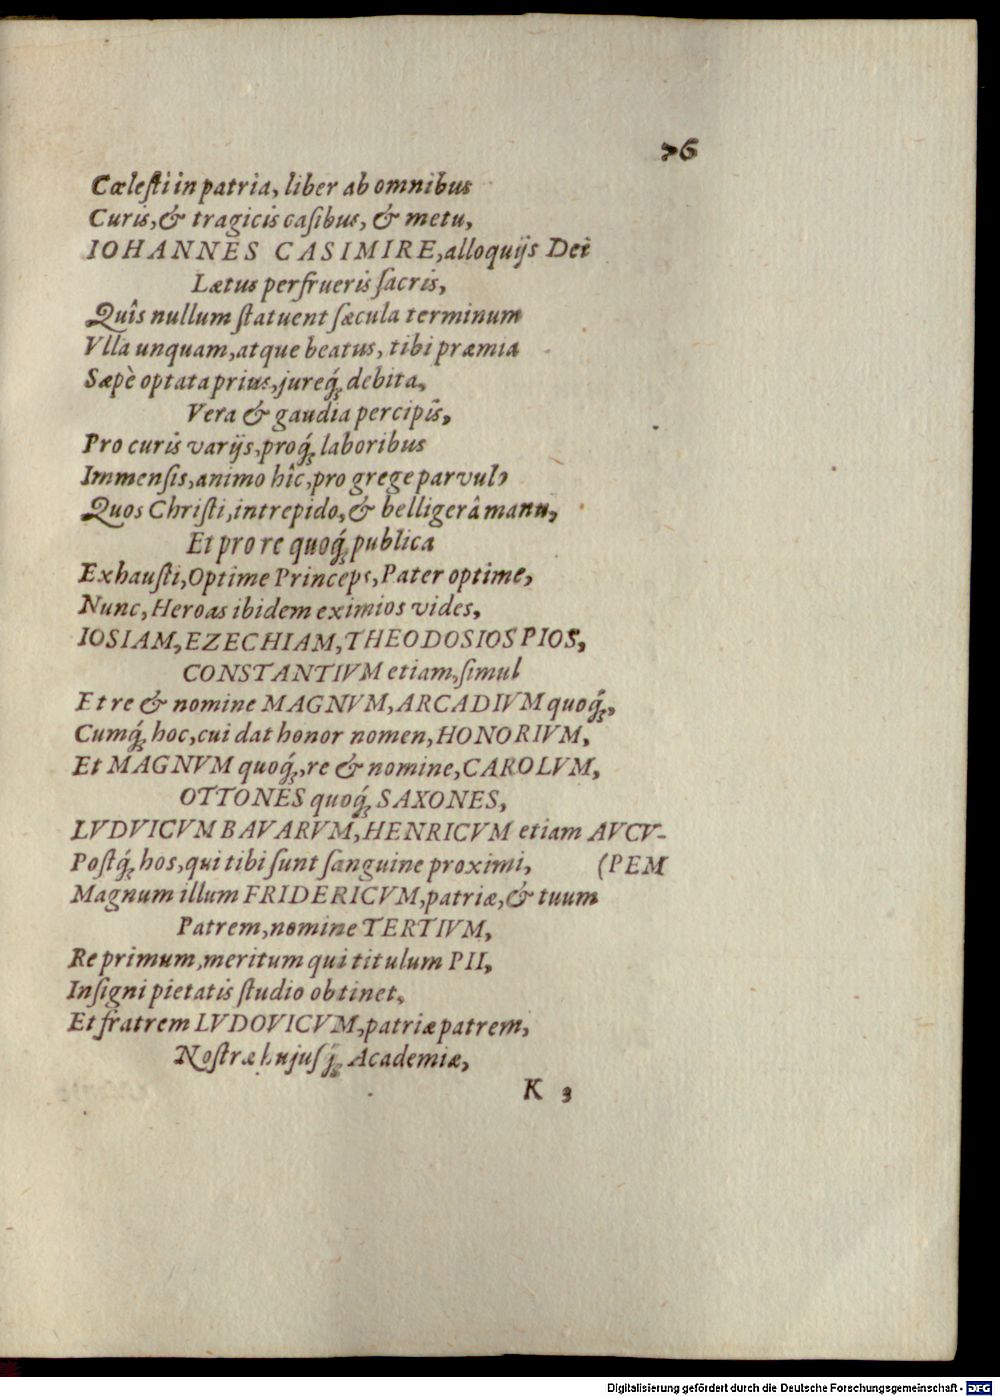 76
Cœleſti in patria, liber ab omnibus
Curis, & tragicis caſibus, & metu,
IOHANNES CASIMIRE, alloquijs Dei
Lætus perfrueris ſacris,
Quîs nullum ſtatuent ſæcula terminum
Vlla unquam, atque beatus, tibi præmia
Sæpè optata prius, jureq́ꝫ debita,
Vera & gaudia percipis,
Pro curis varijs, proq́ꝫ laboribus
Immenſis, animo hîc, pro grege parvulo
Quos Chriſti, intrepido, & belligerâ manu,
Et pro re quoq́ꝫ publica
Exhauſti, Optime Princeps, Pater optime,
Nunc, Heroas ibidem eximios vides,
IOSIAM, EZECHIAM, THEODOSIOS PIOS,
CONSTANTIVM etiam, ſimul
Et re & nomine MAGNVM, ARCADIVM quoq́ꝫ,
Cumq́ꝫ hoc, cui dat honor nomen, HONORIVM,
Et MAGNVM quoq́ꝫ, re & nomine, CAROLVM,
OTTONES quoq́ꝫ SAXONES,
LVDVICVM BAVARVM, HENRICVM etiam AVCV-
Poſtq́ꝫ hos, qui tibi ſunt ſanguine proximi, (PEM
Magnum illum FRIDERICVM, patriæ, & tuum
Patrem, nomine TERTIVM,
Re primum, meritum qui titulum PII,
Inſigni pietatis ſtudio obtinet,
Et fratrem LVDOVICVM, patriæ patrem,
Noſtræ hujuſq́ꝫ Academiæ,
K 3
Digitalisierung gefördert durch die Deutsche Forschungsgemeinschaft - DFG